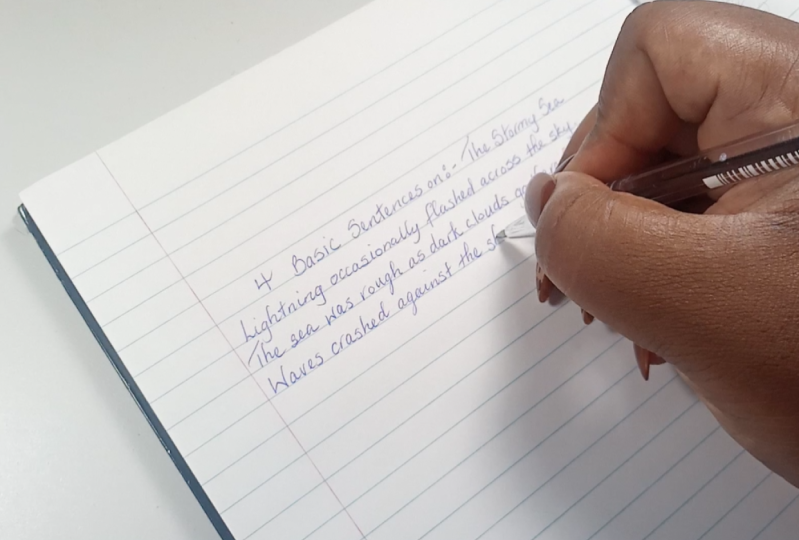 4 Basic Sentences on:- The Stormy Sea
Lightning occasionally flashed across the sky
The sea was rough as dark clouds
Waves crashed against the